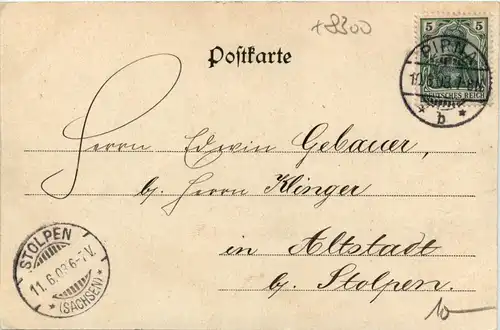 +8300
5
DEUTSCHES REICH
PIRNA
b
Postkarte
Herrn Edwin Gebauer,
b. Herrn Klinger
in Altstadt
b. Stolpen.
STOLPEN
11.6.03 6-7V.
(SACHSEN)
10